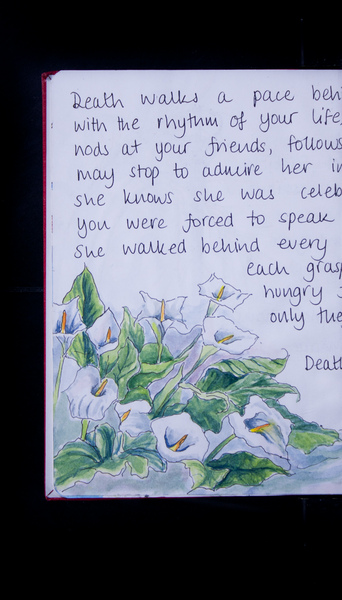 Death walks a pace
with the rhythm of your life,
nods at your friends, follows
may stop to admire her
she knows she was
you were forced to speak
She walked behind every
each
hungry
only
Death